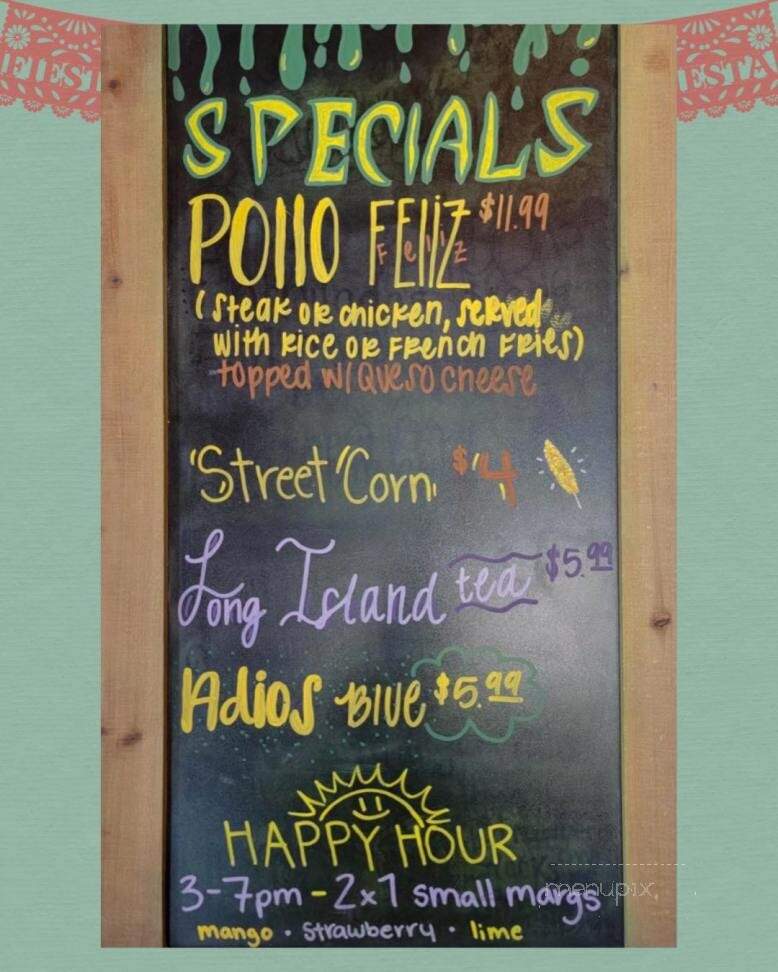 FIESTA
ESTA
SPECIALS
POllO FElIZ $11.99
Feliz
(Steak or chicken, served
with Rice or French Fries)
topped w/ Queso cheese
'Street' Corn $4
Long Island tea $5.99
Adios Blue $5.99
HAPPY HOUR
3-7pm - 2x1 small margs
mango · Strawberry · lime
menupix